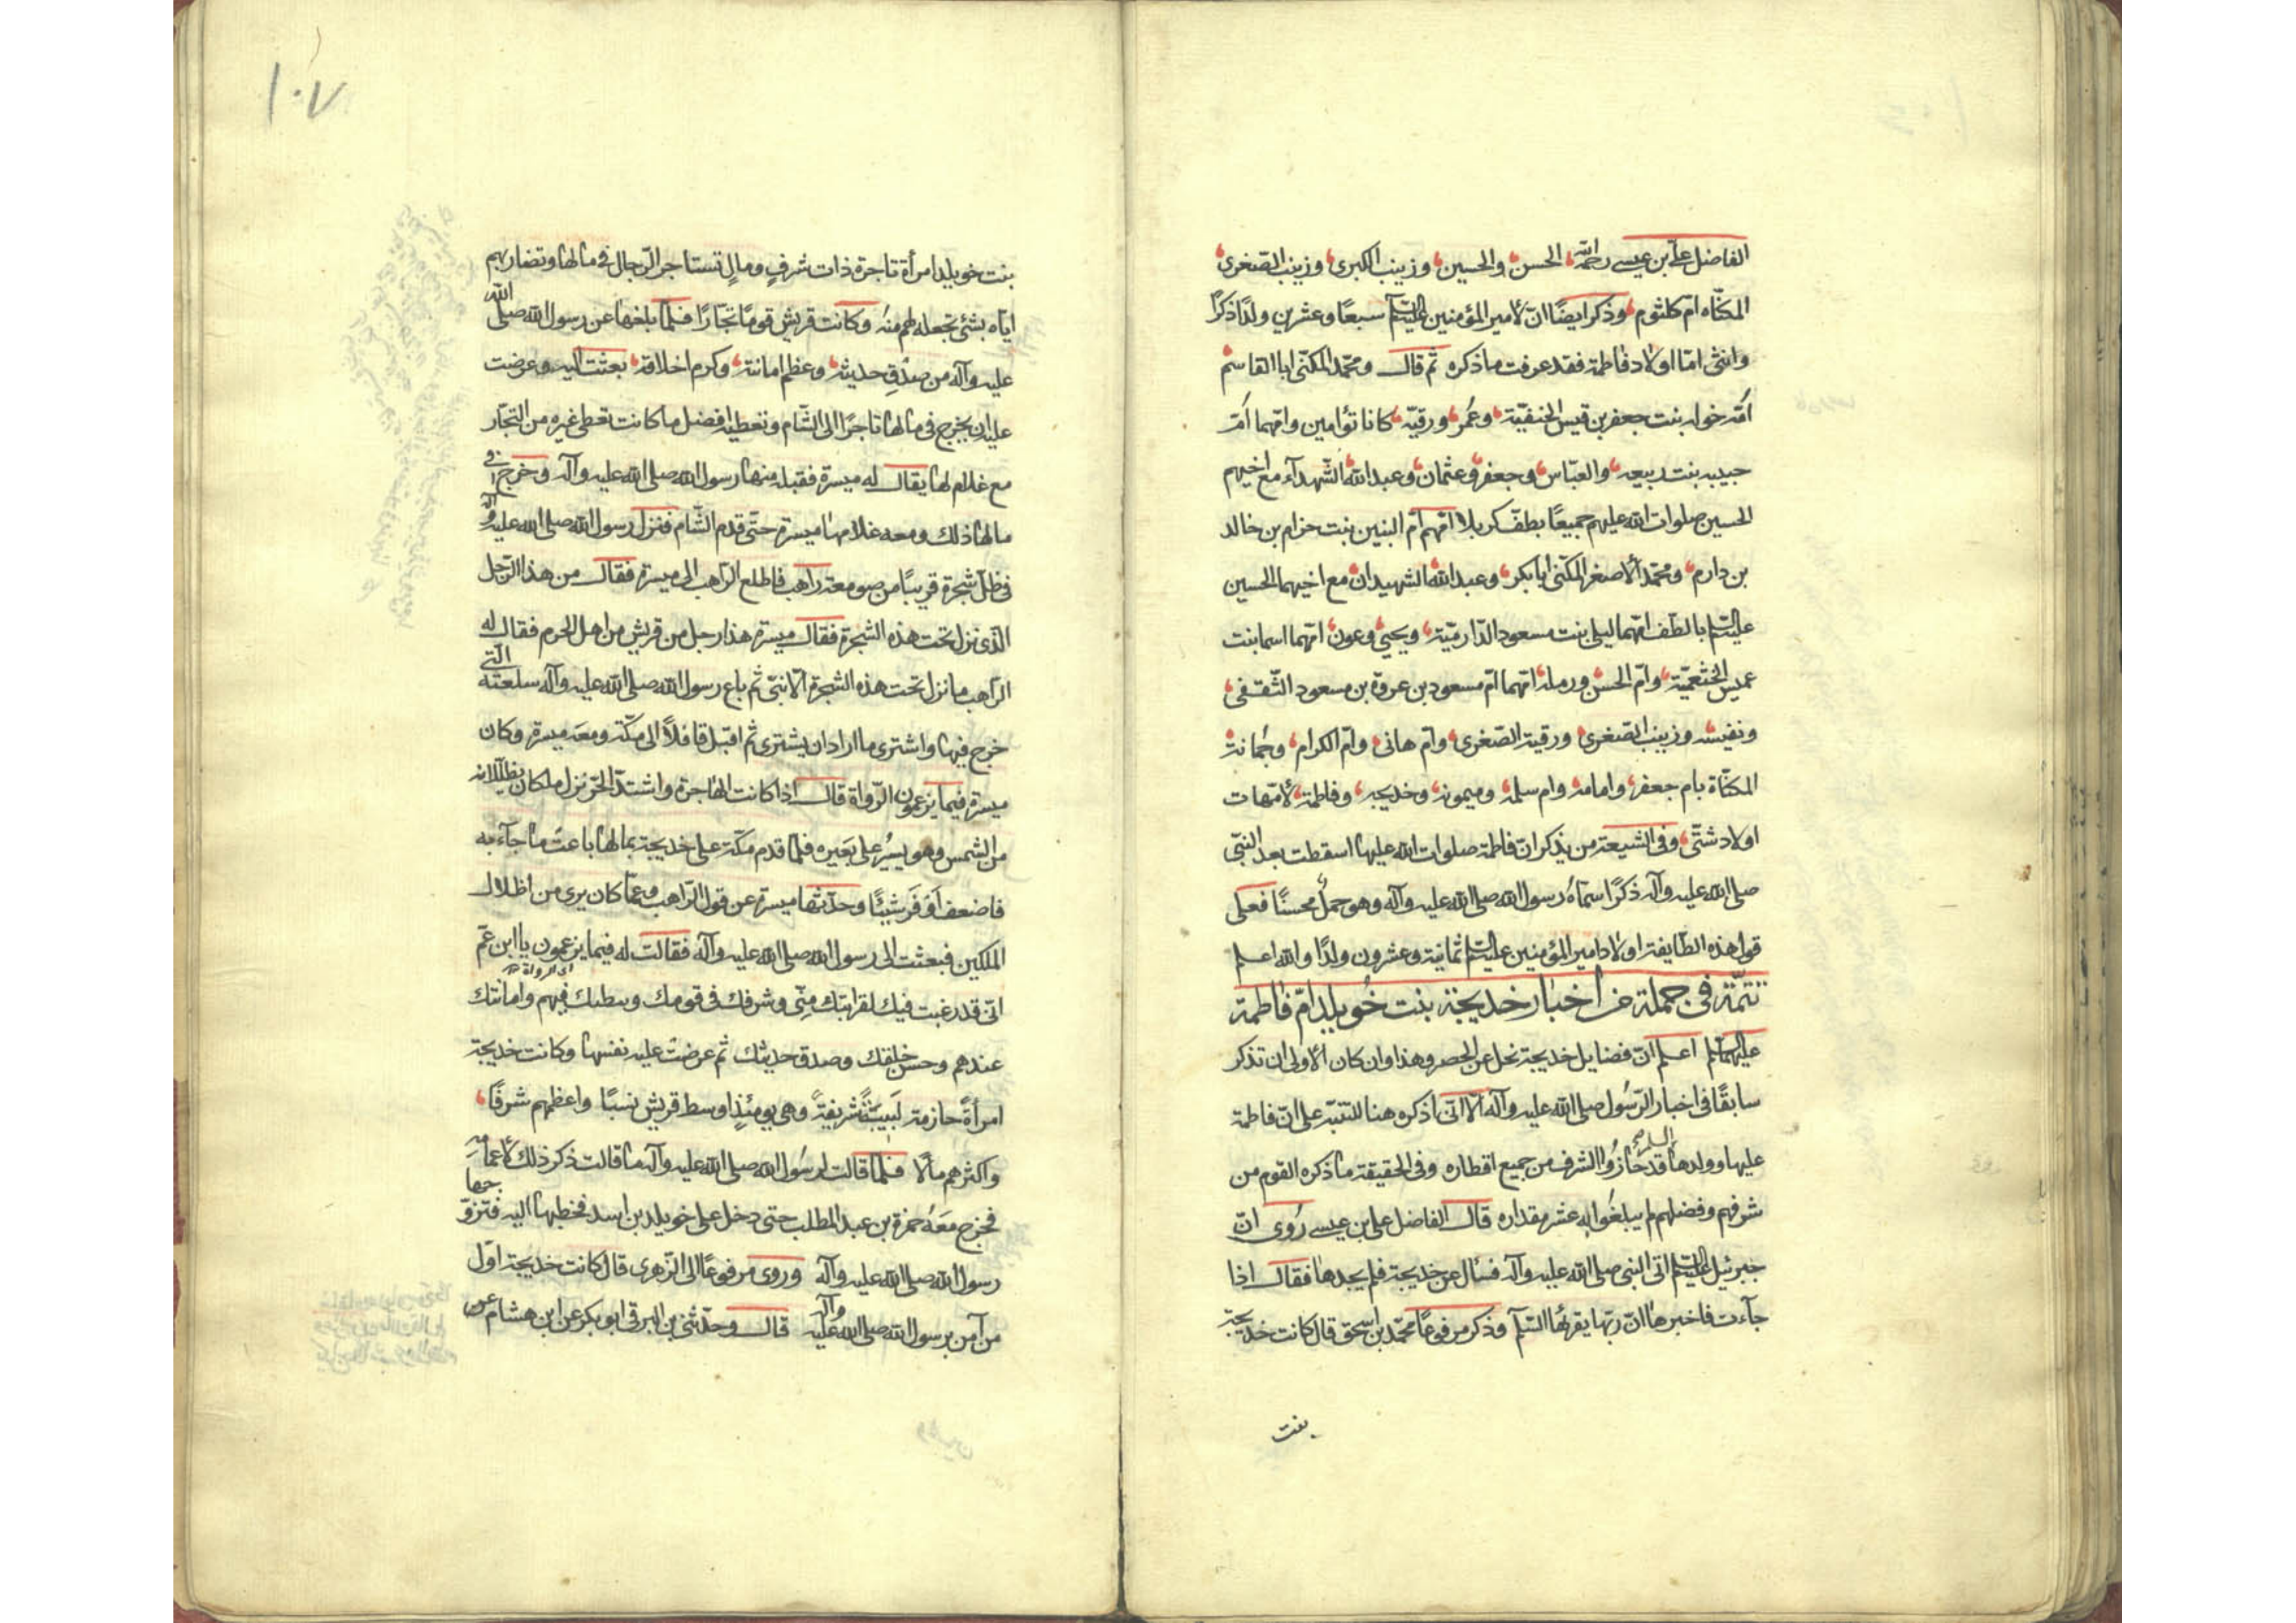 الفاضل علي بن عيسى رحمه الله الحسن والحسين وزينب الكبرى وزينب الصغرى
المكناه ام كلثوم وذكر ايضا ان لامير المؤمنين عليه السلم سبعا وعشرين ولدا ذكرا
وانثى اما اولاد فاطمة فقد عرفت ماذكره ثم قال ومحمد المكنى ابا القاسم
امه خوله بنت جعفر بن قيس الحنفية وعمر ورقية كانا توأمين وامهما ام
حبيبه بنت ربيعه والعباس وجعفر وعثمان وعبد الله الشهدآء مع اخيهم
الحسين صلوات الله عليهم جميعا بطف كربلا امهم ام البنين بنت حزام بن خالد
بن دارم ومحمد الاصغر المكنى ابا بكر وعبد الله الشهيدان مع اخيهما الحسين
عليه السلم بالطف امهما ليلى بنت مسعود الدارمية ويحيى وعون امهما اسما بنت
عميس الخثعمية وام الحسن ورمله امهما ام مسعود بن عروة بن مسعود الثقفى
ونفيسه وزينب الصغرى ورقية الصغرى وام هانى وام الكرام وجمانة
المكناة بام جعفر وامامه وام سلمه وميمونه وخديجه وفاطمة لامهات
اولاد شتى وفى الشيعة من يذكر ان فاطمة صلوات الله عليها اسقطت بعد النبى
صلى الله عليه وآله ذكرا سماه رسول الله صلى الله عليه وآله وهو حمل محسنا فعلى
قول هذه الطايفة اولاد امير المؤمنين عليه السلم ثمانية وعشرون ولدا والله اعلم
تتمة فى جملة من اخبار خديجة بنت خويلد ام فاطمة
عليهما السلم اعلم ان فضايل خديجة تجل عن الحصر وهذا وان كان الاولى ان تذكر
سابقا فى اخبار الرسول صلى الله عليه وآله الا انى اذكره هنا للتنبه على ان فاطمة
عليها السلام وولدها قد حازوا الشرف من جميع اقطاره وفى الحقيقة ما ذكره القوم من
شرفهم وفضلهم لم يبلغوا به عشر مقداره قال الفاضل على بن عيسى روى ان
جبرئيل عليه السلم اتى النبى صلى الله عليه وآله فسال عن خديجة فلم يجدها فقال اذا
جآءت فاخبرها ان ربها يقرئها السلم وذكر مرفوعا محمد بن اسحق قال كانت خديجة
بنت
١٠٧
بنت خويلد امرأة تاجرة ذات شرف ومال تستاجر الرجال فى مالها وتضاربهم
اياه بشئ تجعله لهم منه وكانت قريش قوما تجارا فلما بلغها عن رسول الله صلى الله
عليه وآله من صدق حديثه وعظم امانته وكرم اخلاقه بعثت اليه وعرضت
عليه ان يخرج فى مالها تاجرا الى الشام وتعطيه افضل ما كانت تعطى غيره من التجار
مع غلام لها يقال له ميسرة فقبله منها رسول الله صلى الله عليه وآله وخرج فى
مالها ذلك ومعه غلامها ميسرة حتى قدم الشام فنزل رسول الله صلى الله عليه وآله
فى ظل شجرة قريبا من صومعة راهب فاطلع الراهب الى ميسرة فقال من هذا الرجل
الذى نزل تحت هذه الشجرة فقال ميسرة هذا رجل من قريش من اهل الحرم فقال له
الراهب ما نزل تحت هذه الشجرة الا نبى ثم باع رسول الله صلى الله عليه وآله سلعته التى
خرج فيها واشترى ما اراد ان يشترى ثم اقبل قافلا الى مكة ومعه ميسرة وكان
ميسرة فيما يزعمون الرواة قال اذا كانت الهاجرة واشتد الحر نزل ملكان يظللانه
من الشمس وهو يسير على بعيره فلما قدم مكة على خديجة بمالها باعت ما جآء به
فاضعف او قريبا وحدثها ميسرة عن قول الراهب وعما كان يرى من اظلال
الملكين فبعثت الى رسول الله صلى الله عليه وآله فقالت له فيما يزعمون يا ابن عم
اى الرواة
انى قد رغبت فيك لقرابتك منى وشرفك فى قومك وسطتك فيهم وامانتك
عندهم وحسن خلقك وصدق حديثك ثم عرضت عليه نفسها وكانت خديجة
امرأة حازمة لبيبة شريفة وهى يومئذ اوسط قريش نسبا واعظمهم شرفا
واكثرهم مالا فلما قالت لرسول الله صلى الله عليه وآله ما قالت ذكر ذلك لاعمامه
فخرج معه حمزة بن عبد المطلب حتى دخل على خويلد بن اسد فخطبها اليه فتزوجها
رسول الله صلى الله عليه وآله وروى مرفوعا الى الزهرى قال كانت خديجة اول
من آمن برسول الله صلى الله عليه وآله قال وحدثنى بن البرقى ابو بكر عن ابن هشام عن